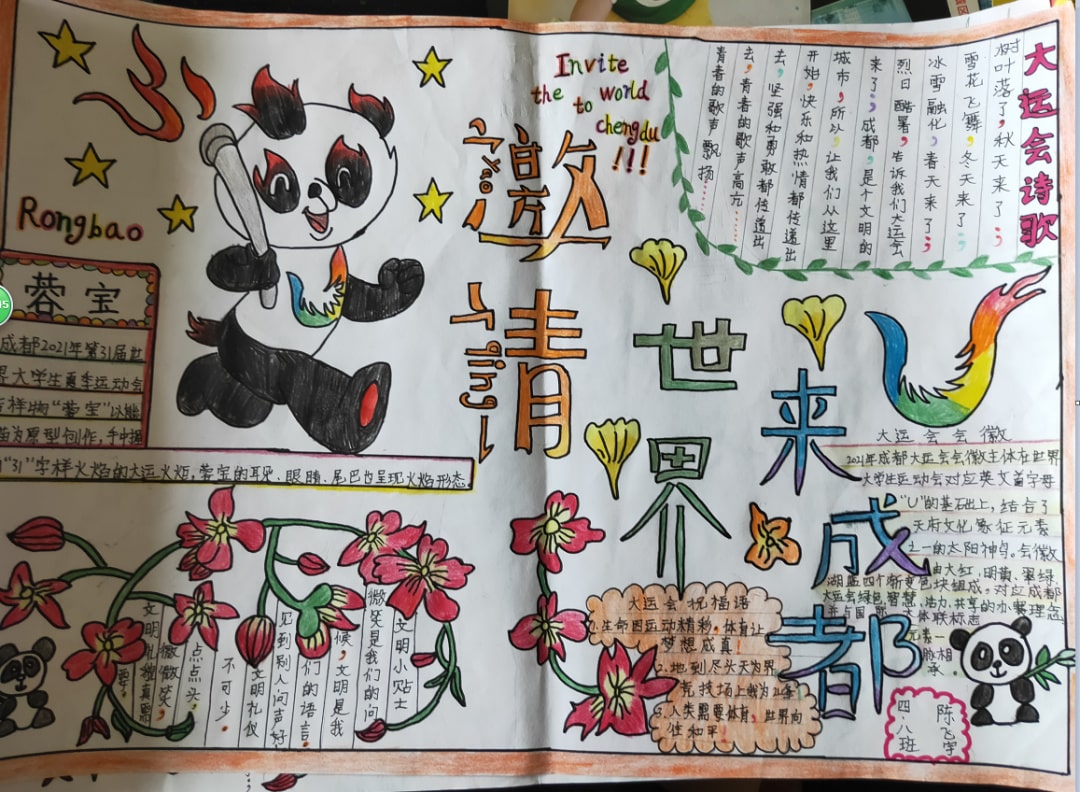 Invite
the world
to
chengdu
!!!
yāo
邀
qǐng
请
世
界
来
成
都
Rongbao
蓉宝
成都2021年第31届世
界大学生夏季运动会
吉祥物“蓉宝”以熊
猫为原型创作,手中握
“31”字样火焰的大运火炬,蓉宝的耳朵、眼睛、尾巴也呈现火焰形态
大运会诗歌
树叶落了,秋天来了;
雪花飞舞,冬天来了;
冰雪融化,春天来了;
烈日酷暑,告诉我们大运会
来了,成都,是个文明的
城市,所以,让我们从这里
开始,快乐和热情都传递出
去,坚强和勇敢都传递出
去,青春的歌声高亢……
青春的歌声飘扬……
大运会会徽
2021年成都大运会会徽主体在世界
大学生运动会对应英文首字母
“U”的基础上,结合了
天府文化象征元素
之一的太阳神鸟。会徽
由大红,明黄、翠绿,
湖蓝四个渐变色块组成。对应成都
大运会绿色、智慧、活力、共享的办赛理念
元素一
脉相
承。
文明小贴士
微笑是我们的问
候,文明是我
们的语言。
见到别人问声好,
文明礼仪
不可少。
点点头,
微微笑,
大运会祝福语
1.生命因运动精彩,体育让
梦想成真!
2.地到尽头天为界
竞技场上我为
3.人类需要体育,世界向
往和平!
四.八班
陈飞宇